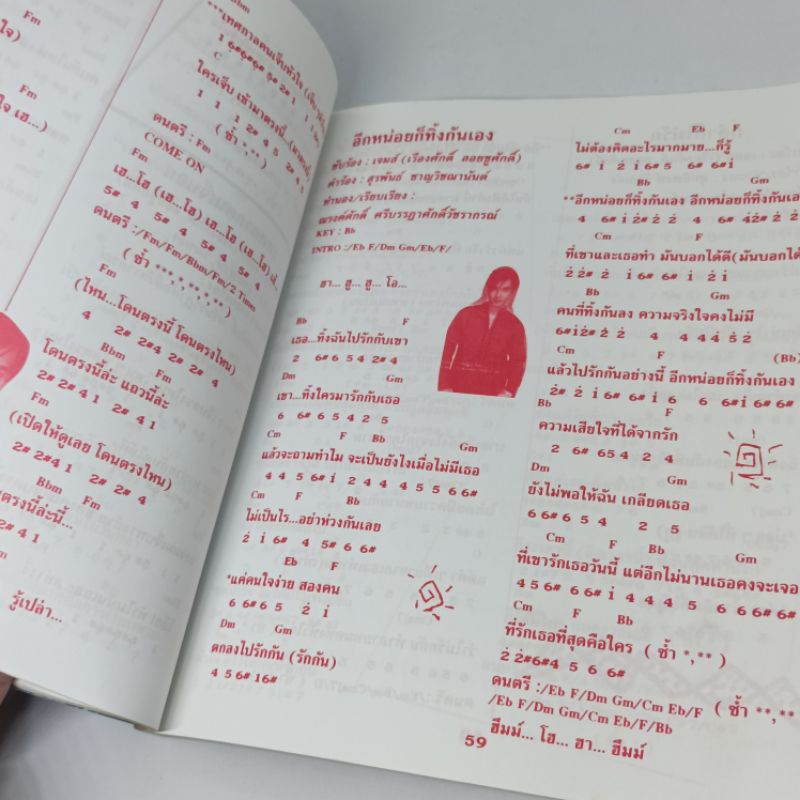 Fm
Fm
Bbm
***เทศกาลคนเจ็บหัวใจ
C
ใครเจ็บ เข้ามาตรงนี้...
ดนตรี : Fm ( ซ้ำ *,** )
COME ON
Fm
เฮ...โฮ (เฮ...โฮ) เฮ...โฮ (เฮ...โฮ)
5# 4 5# 4 5# 4 5# 4
ดนตรี :/Fm/Fm/Bbm/Fm/2 Times
Fm
(ไหน...โดนตรงนี้ โดนตรงไหน)
4 2# 2#4 2# 2# 4
Bbm Fm
โดนตรงนี้ล่ะ แถวนี้ล่ะ
2# 2# 4 1 2# 4 1
Fm
(เปิดให้ดูเลย โดนตรงไหน)
2# 2#4 1 2# 2# 4
Bbm Fm
ตรงนี้ล่ะนี้...
2# 4 1
รู้เปล่า...
อีกหน่อยก็ทิ้งกันเอง
ขับร้อง : เจมส์ (เรืองศักดิ์ ลอยชูศักดิ์)
คำร้อง : สุรพันธ์ ชาญวิชณานันต์
ทำนอง/เรียบเรียง :
ณรงค์ศักดิ์ ศรีบรรฎาศักดิ์วัชราภรณ์
KEY : Bb
INTRO :/Eb F/Dm Gm/Eb/F/
ฮา... ฮู... ฮู... โอ...
Bb F
เธอ...ทิ้งฉันไปรักกับเขา
2 6# 6 5 4 2# 4
Dm Gm
เขา...ทิ้งใครมารักกับเธอ
6 6# 6 5 4 2 5
Cm F Bb Gm
แล้วจะถามทำไม จะเป็นยังไงเมื่อไม่มีเธอ
4 4 5 6# i 2 4 4 4 5 5 6 6#
Cm F Bb
ไม่เป็นไร...อย่าห่วงกันเลย
2̇ i 6# 4 5# 6 6#
Eb F
*แค่คนใจง่าย สองคน
6 6# 6 5 2̇ i
Dm Gm
ตกลงไปรักกัน (รักกัน)
4 5 6# 1 6#
Cm Eb F
ไม่ต้องคิดอะไรมากมาย...ก็รู้
6# i 2̇ i 6# 5 6# 6# i
Bb Gm
**อีกหน่อยก็ทิ้งกันเอง อีกหน่อยก็ทิ้งกันเอง
4 6# i 2̇# 2̇ 2̇ 4 6# 4 2̇# 2̇ 2̇
Cm F
ที่เขาและเธอทำ มันบอกได้ดี(มันบอกได้
2̇ 2̇# 2̇ 2̇ i 6# 6# i 2̇ i
Bb Gm
คนที่ทิ้งกันลง ความจริงใจคงไม่มี
6# i 2̇# 2̇ 2̇ 4 4 4 4 5̇ 2̇
Cm F (Bb)
แล้วไปรักกันอย่างนี้ อีกหน่อยก็ทิ้งกันเอง
2̇# 2̇ i 6# 6# i 6 6 6# i 6# 6#
Bb F
ความเสียใจที่ได้จากรัก
2 6# 6 5 4 2 4
Dm Gm
ยังไม่พอให้ฉัน เกลียดเธอ
6 6# 6 5 4 2 5
Cm F Bb Gm
ที่เขารักเธอวันนี้ แต่อีกไม่นานเธอคงจะเจอ
4 5 6# 6 6# i 4 4 4 5 6 6 6# 6#
Cm F Bb
ที่รักเธอที่สุดคือใคร ( ซ้ำ *,** )
2̇ 2̇#6#4 5 6 6#
ดนตรี :/Eb F/Dm Gm/Cm Eb/F ( ซ้ำ **,**
/Eb F/Dm Gm/Cm Eb/F/Bb
ฮืมม์... โฮ... ฮา... ฮืมม์
59